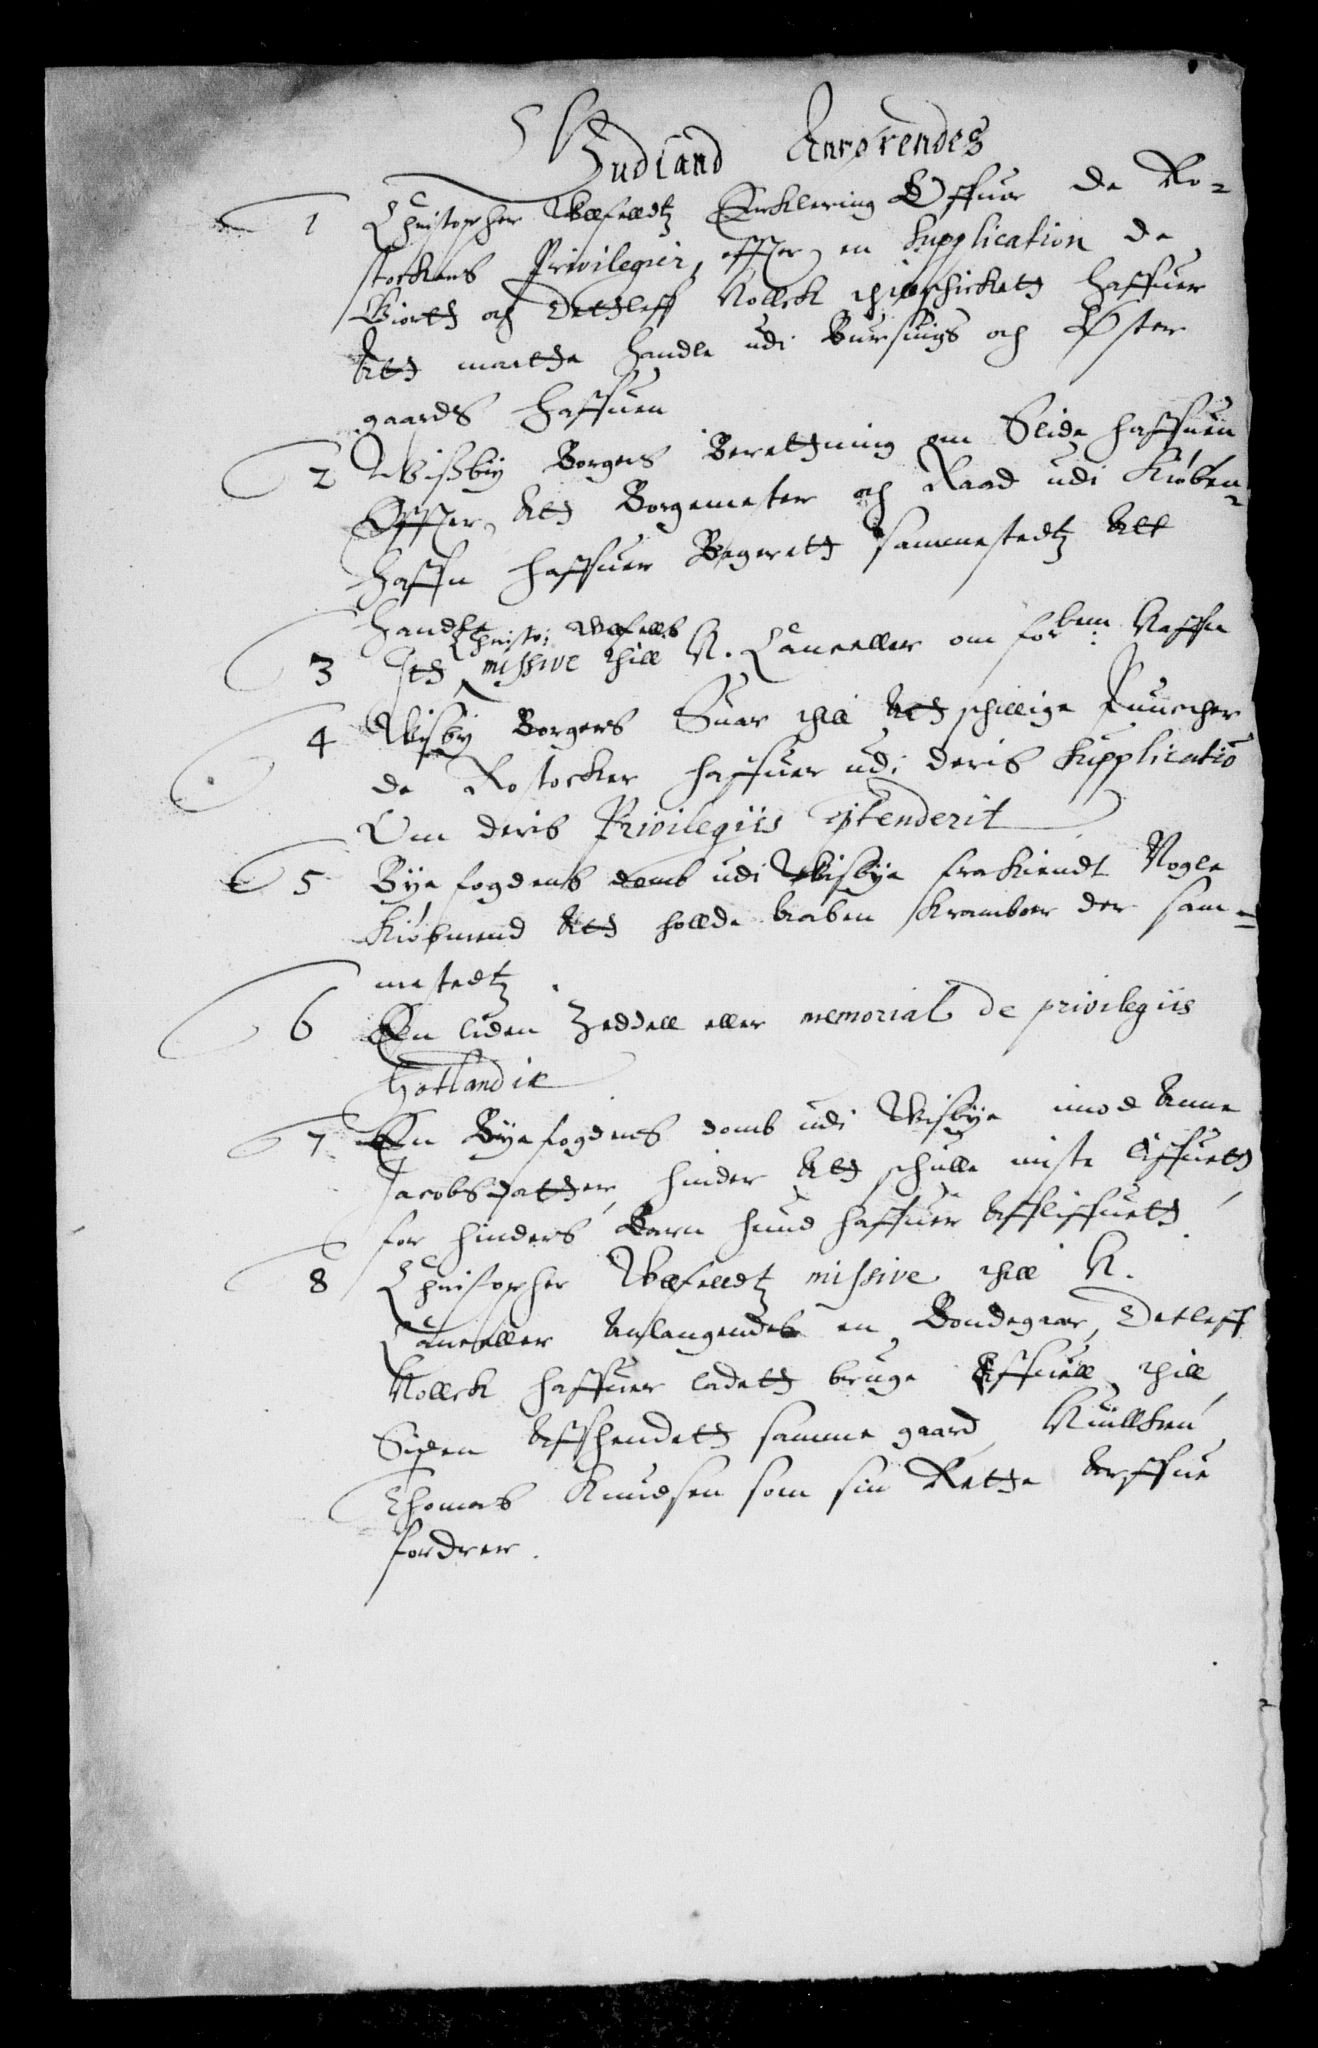 Gudland Anrørendes
1 Christopher Ulfelldtz Erklering Offuer de Ro-
stockers Privilegier, effter en Supplication de
Giortt och Detleff Kolleck thillschickett haffuer
Att maatte handle udi Bursuigs och Øster
gaards haffuen
2 Wisbÿ Borgers Berettning om Slide haffuen
Effter Att Borgemester och Raad udi Kiøben-
haffn haffuer Begerett sammestedtz Att
handle
Christo: Ulfellds
3 Itt missive thill K. Cantzeller om forbem: Haffn
4 Wisbÿ Borgers Suar thill Att schillige Puncther
de Rostocker haffuer udi deris Supplicatio
Om deris Privilegiis ostenderit
5 Bÿe fogdens domb udi Wisbÿe frakiendt Nogle
Kiøbmend Att hollde Aaben Kramboer der sam-
mestedtz
6 En liden Zeddell eller memorial de privilegiis
Gotlandiæ
7 En Bÿefogdens domb udi Wisbÿe imod Anne
Jacobsdatter, hinder Att schulle miste Liffuett
for hinders Barn hund haffuer Affliffuett
8 Christopher Ulfelldtz missive thill K.
Cantzeller Anlangendes en Bondegaar, Detleff
Kolleck haffuer ladett bruge Affuell thill
Siden Affhendett samme gaard,
Thomas Knudsen som sin Rette Arffue
fordrer.